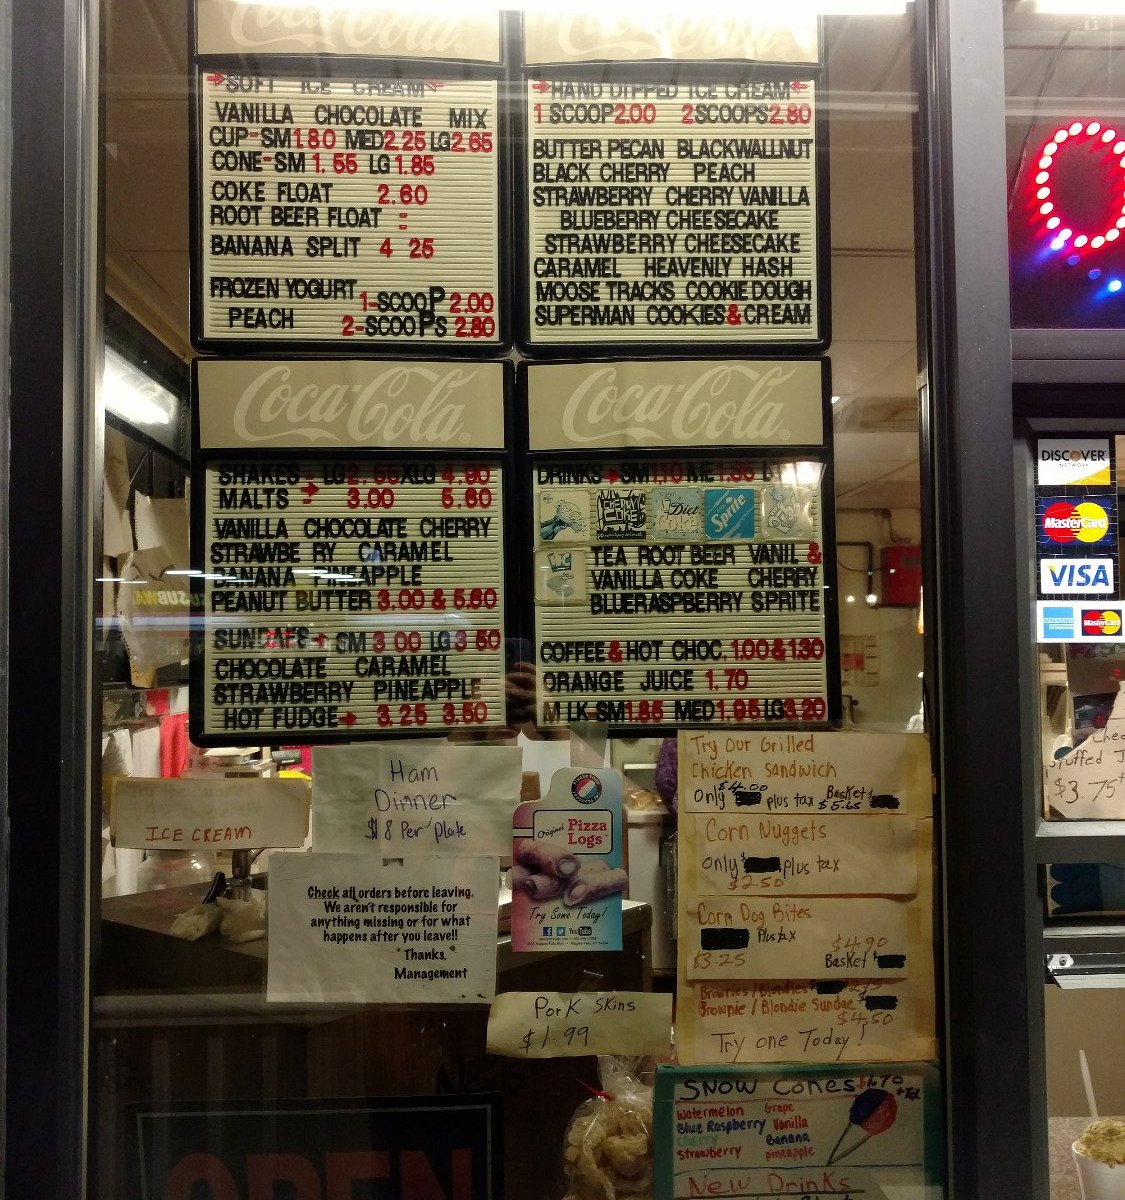 Coca-Cola
SOFT ICE CREAM
VANILLA CHOCOLATE MIX
CUP-SM1.80 MED2.25 LG2.65
CONE-SM 1.55 LG 1.85
COKE FLOAT 2.60
ROOT BEER FLOAT
BANANA SPLIT 4 25
FROZEN YOGURT
1-SCOOP 2.00
PEACH 2-SCOOPS 2.80
Coca-Cola
HAND DIPPED ICE CREAM
1 SCOOP2.00 2SCOOPS2.80
BUTTER PECAN BLACKWALLNUT
BLACK CHERRY PEACH
STRAWBERRY CHERRY VANILLA
BLUEBERRY CHEESECAKE
STRAWBERRY CHEESECAKE
CARAMEL HEAVENLY HASH
MOOSE TRACKS COOKIE DOUGH
SUPERMAN COOKIES&CREAM
Coca-Cola
SHAKES LG2.55XLG 4.90
MALTS 3.00 5.60
VANILLA CHOCOLATE CHERRY
STRAWBE RY CARAMEL
BANANA PINEAPPLE
PEANUT BUTTER 3.00 & 5.60
SUNDAES SM 3 00 LG3 50
CHOCOLATE CARAMEL
STRAWBERRY PINEAPPLE
HOT FUDGE 3.25 3.50
Coca-Cola
DRINKS SM1.10 ME1.35
Diet Coke
Sprite
TEA ROOT BEER VANIL &
VANILLA COKE CHERRY
BLUERASPBERRY SPRITE
COFFEE&HOT CHOC. 1.00&1.30
ORANGE JUICE 1.70
M LK-SM1.85 MED1.95LG3.20
ICE CREAM
Ham
Dinner
$8 Per Plate
Check all orders before leaving.
We aren't responsible for
anything missing or for what
happens after you leave!!
Thanks,
Management
Original Pizza
Logs
Try Some Today!
YouTube
Pork Skins
$1.99
Try Our Grilled
Chicken Sandwich
Only $4.00 plus tax Basket $5.65
Corn Nuggets
Only $ plus tax
$2.50
Corn Dog Bites
Plus tax
$3.25
$4.90
Basket $
Brownies/Blondies
Brownie / Blondie Sundae $
$4.50
Try one Today!
SNOW CONES $1.70 + Tax
Watermelon Grape
Blue Raspberry Vanilla
Cherry Banana
Strawberry pineapple
New Drinks
OPEN
DISCOVER
NETWORK
MasterCard
VISA
MasterCard
stuffed J
$3.75